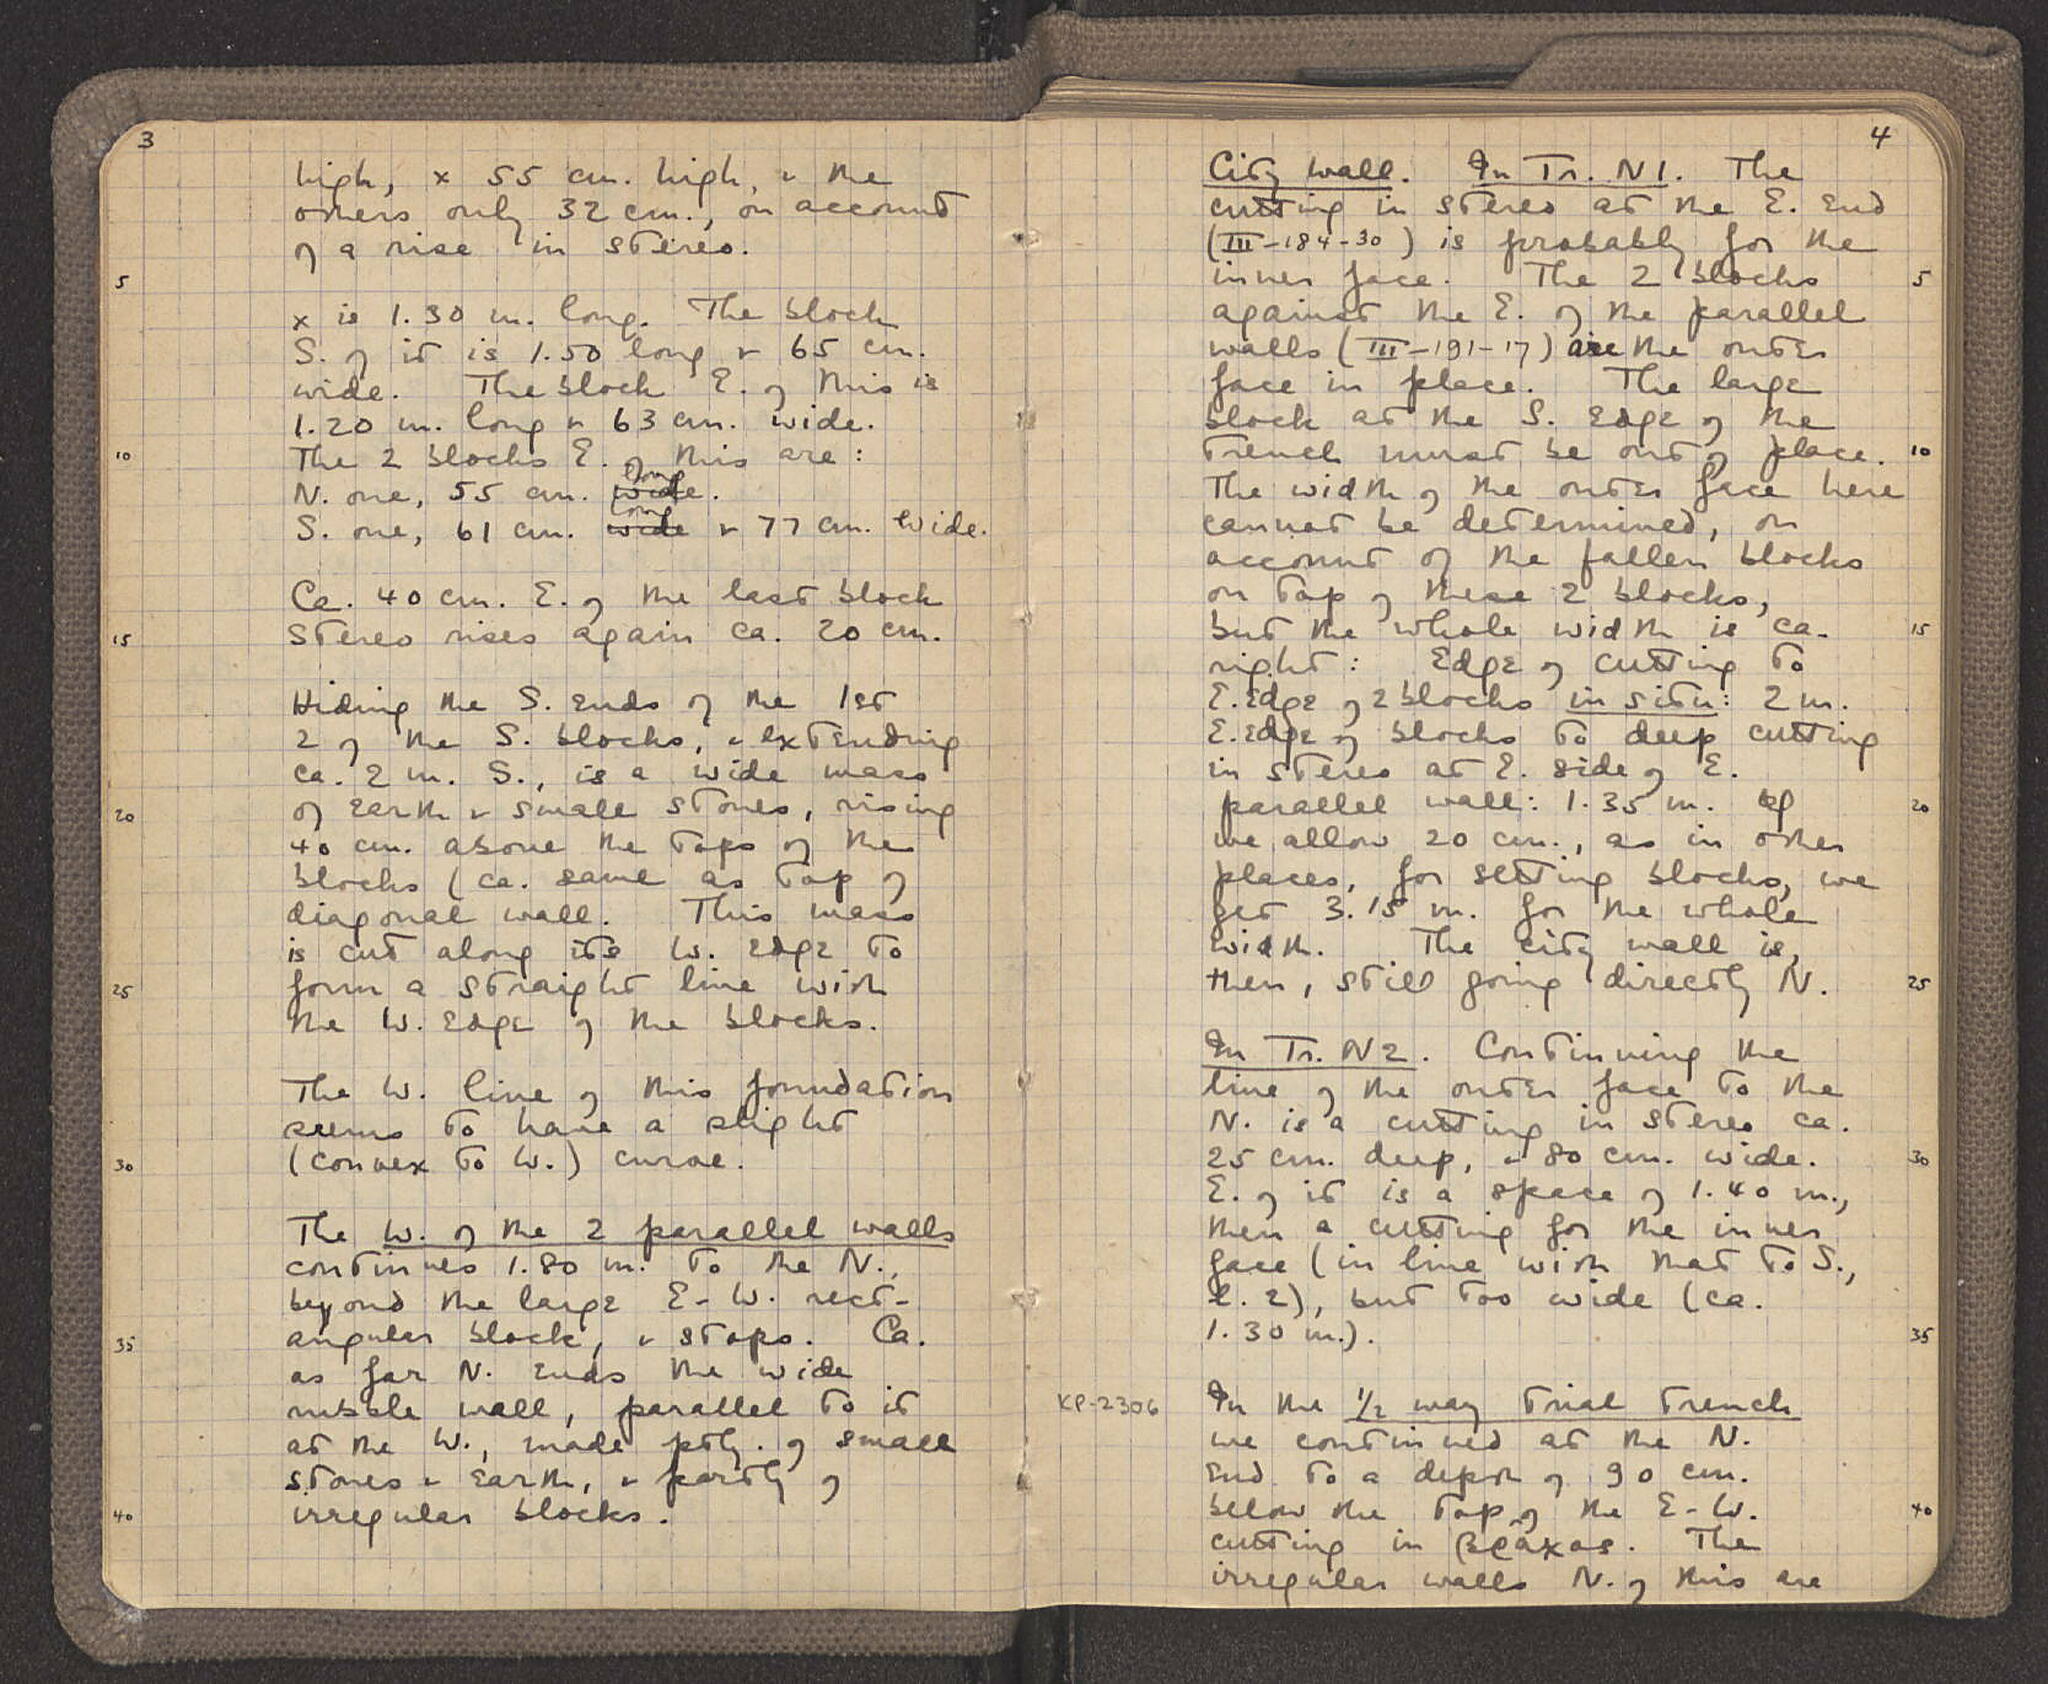 3
high, x 55 cm. high, & the
others only 32 cm., on account
of a rise in stereo.
5
x is 1.30 m. long. The block
S. of it is 1.50 long & 65 cm.
wide. The block E. of this is
1.20 m. long & 63 cm. wide.
10 The 2 blocks E. of this are:
long
N. one, 55 cm. wide.
long
S. one, 61 cm. wide & 77 cm. wide.
Ca. 40 cm. E. of the last block
15 stereo rises again ca. 20 cm.
Hiding the S. ends of the 1st
2 of the S. blocks, & extending
ca. 2 m. S., is a wide mass
20 of earth & small stones, rising
40 cm. above the tops of the
blocks (ca. same as top of
diagonal wall. This mass
is cut along its W. edge to
25 form a straight line with
the W. edge of the blocks.
The W. line of this foundation
seems to have a slight
30 (convex to W.) curve.
The W. of the 2 parallel walls
continues 1.80 m. to the N.,
beyond the large E-W. rect-
35 angular block, & stops. Ca.
as far N. ends the wide
rubble wall, parallel to it
at the W., made ptly. of small
stones & earth, & partly of
40 irregular blocks.
4
City wall. In Tr. N1. The
cutting in stereo at the E. end
(III-184-30) is probably for the
inner face. The 2 blocks 5
against the E. of the parallel
walls (III-191-17) are the outer
face in place. The large
block at the S. edge of the
trench must be out of place. 10
The width of the outer face here
cannot be determined, on
account of the fallen blocks
on top of these 2 blocks,
but the whole width is ca. 15
right: Edge of cutting to
E. edge of 2 blocks in situ: 2 m.
E. edge of blocks to deep cutting
in stereo at E. side of E.
parallel wall: 1.35 m. If 20
we allow 20 cm., as in other
places, for setting blocks, we
get 3.15 m. for the whole
width. The city wall is,
then, still going directly N. 25
In Tr. N2. Continuing the
line of the outer face to the
N. is a cutting in stereo ca.
25 cm. deep, & 80 cm. wide. 30
E. of it is a space of 1.40 m.,
then a cutting for the inner
face (in line with that to S.,
l. 2), but too wide (ca.
1.30 m.). 35
KP-2306 In the 1/2 way trial trench
we continued at the N.
end to a depth of 90 cm.
below the top of the E-W. 40
cutting in βράχος. The
irregular walls N. of this are